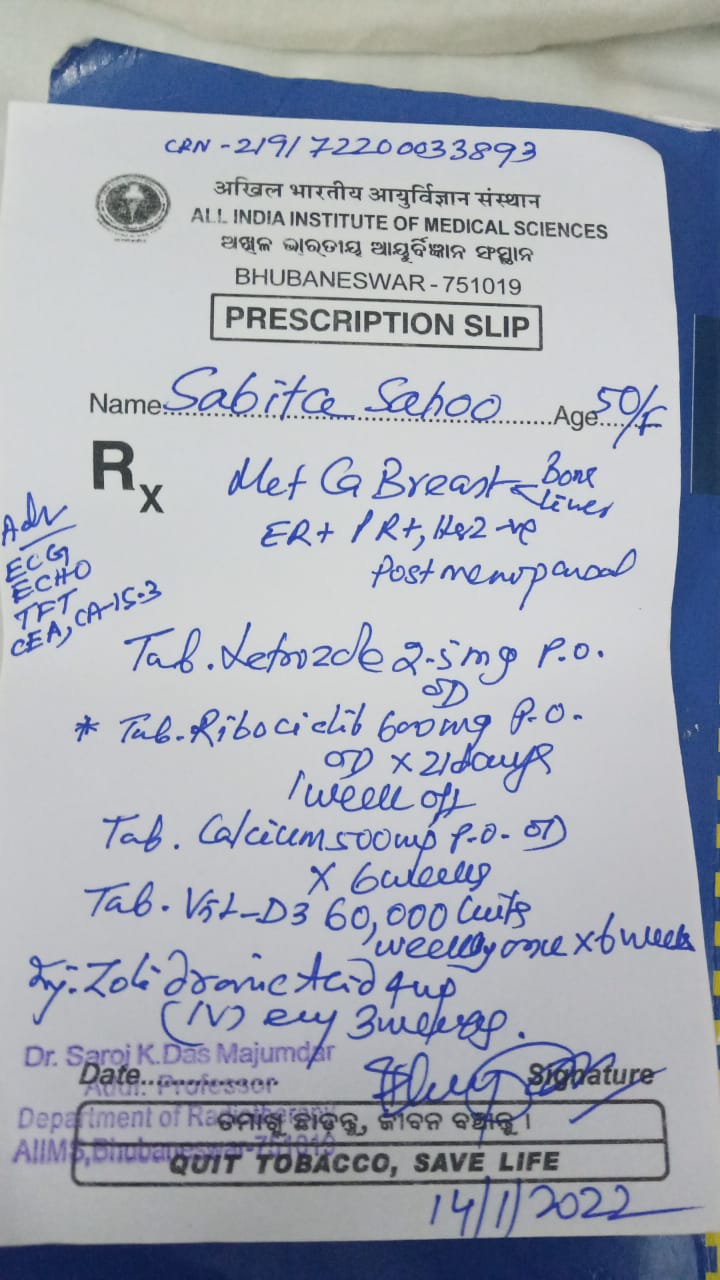 CRN - 219/72200033893
अखिल भारतीय आयुर्विज्ञान संस्थान
ALL INDIA INSTITUTE OF MEDICAL SCIENCES
ଅଖିଳ ଭାରତୀୟ ଆୟୁର୍ବିଜ୍ଞାନ ସଂସ୍ଥାନ
BHUBANESWAR - 751019
PRESCRIPTION SLIP
Name Sabita Sahoo Age 50/F
Rx
Met Ca Breast Bone
Liver
ER+ PR+, Her2 -ve
Postmenopausal
Adv
ECG
ECHO
TFT
CEA, CA-15.3
Tab. Letrozole 2.5mg P.O.
OD
* Tab. Ribociclib 600mg P.O.
OD x 21days
1 week off
Tab. Calcium 500mg P.O. OD
x 6 weeks
Tab. Vit-D3 60,000 Units
weekly once x 6 week
Inj. Zolidronic Acid 4mg
(IV) every 3 weeks.
Dr. Saroj K.Das Majumdar
Date Signature
Addl. Professor
Department of Radiotherapy
AIIMS, Bhubaneswar-751019
ତମାଖୁ ଛାଡ଼ନ୍ତୁ, ଜୀବନ ବଞ୍ଚାନ୍ତୁ ।
QUIT TOBACCO, SAVE LIFE
14/1/2022